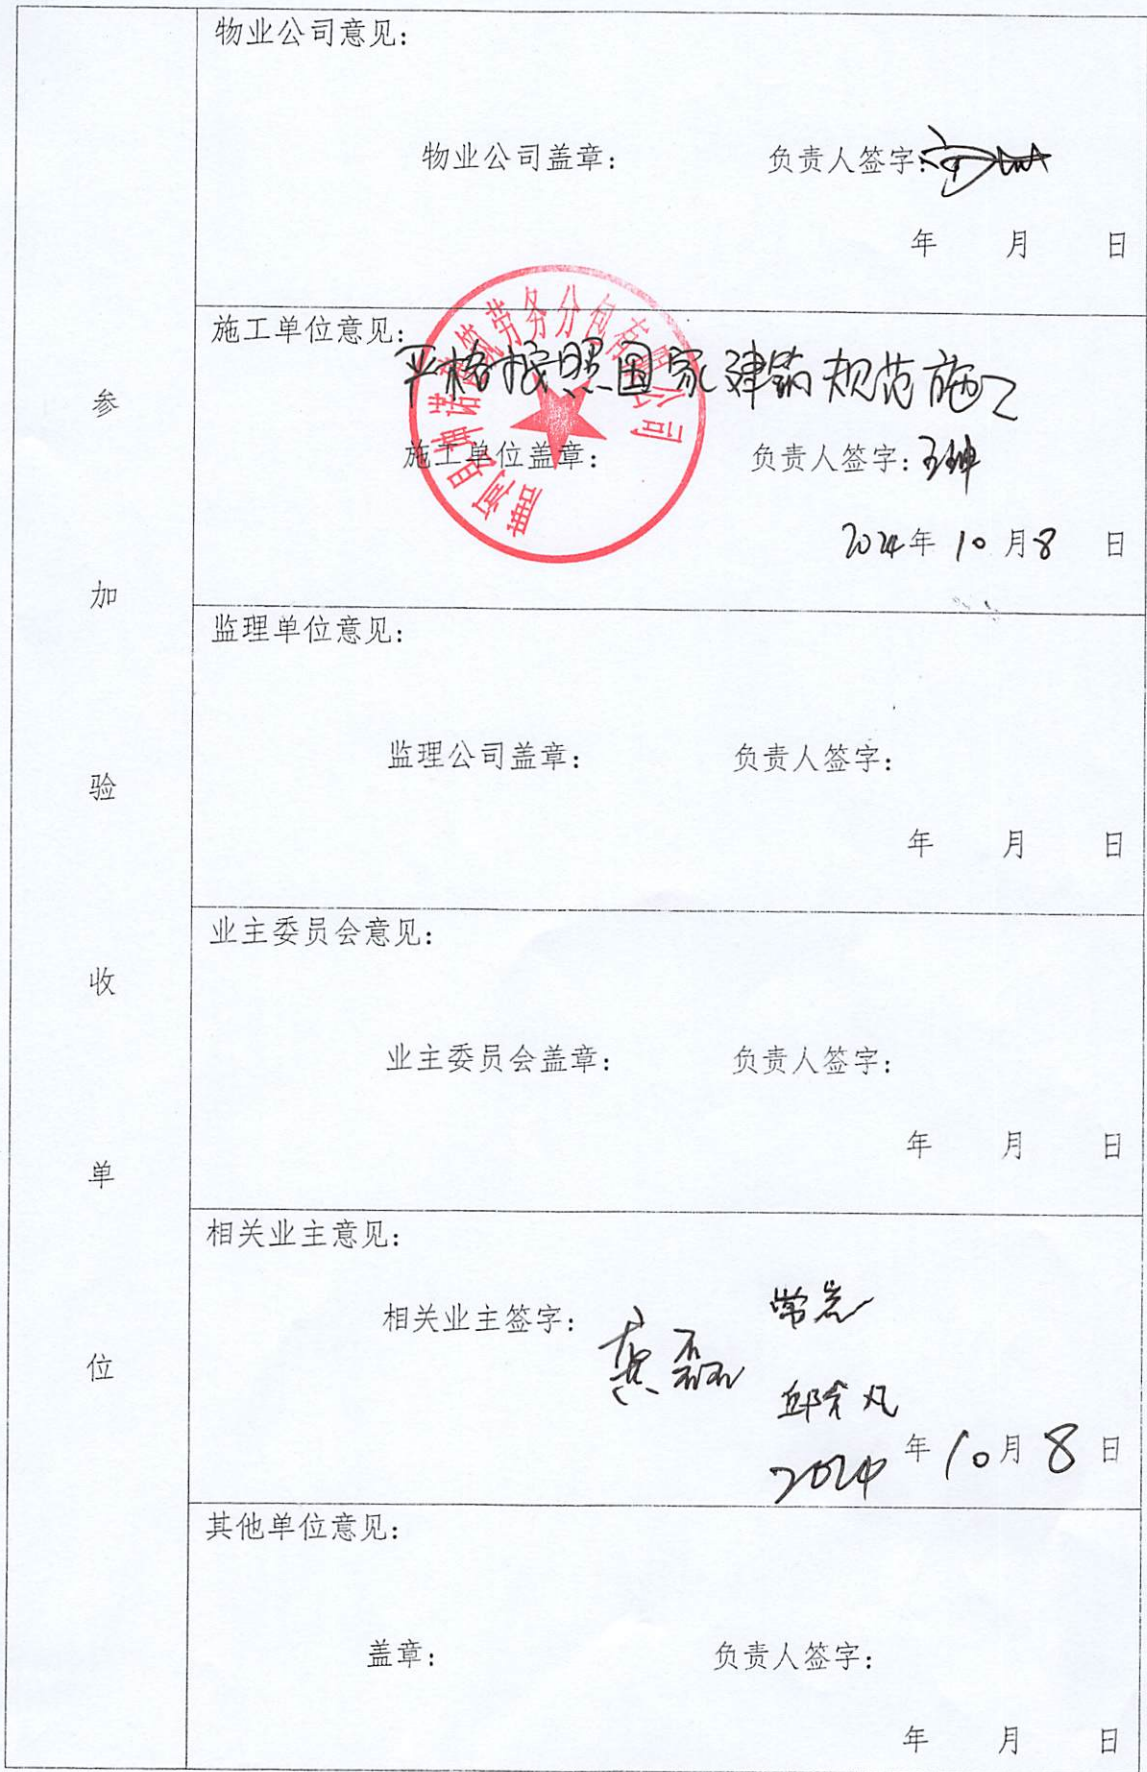 参加验收单位
物业公司意见：
物业公司盖章： 负责人签字：
年 月 日
施工单位意见：
严格按照国家建筑规范施工
唐河县坤诺建筑劳务分包有限公司
施工单位盖章： 负责人签字：
2024年10月8日
监理单位意见：
监理公司盖章： 负责人签字：
年 月 日
业主委员会意见：
业主委员会盖章： 负责人签字：
年 月 日
相关业主意见：
相关业主签字：
2024年10月8日
其他单位意见：
盖章： 负责人签字：
年 月 日